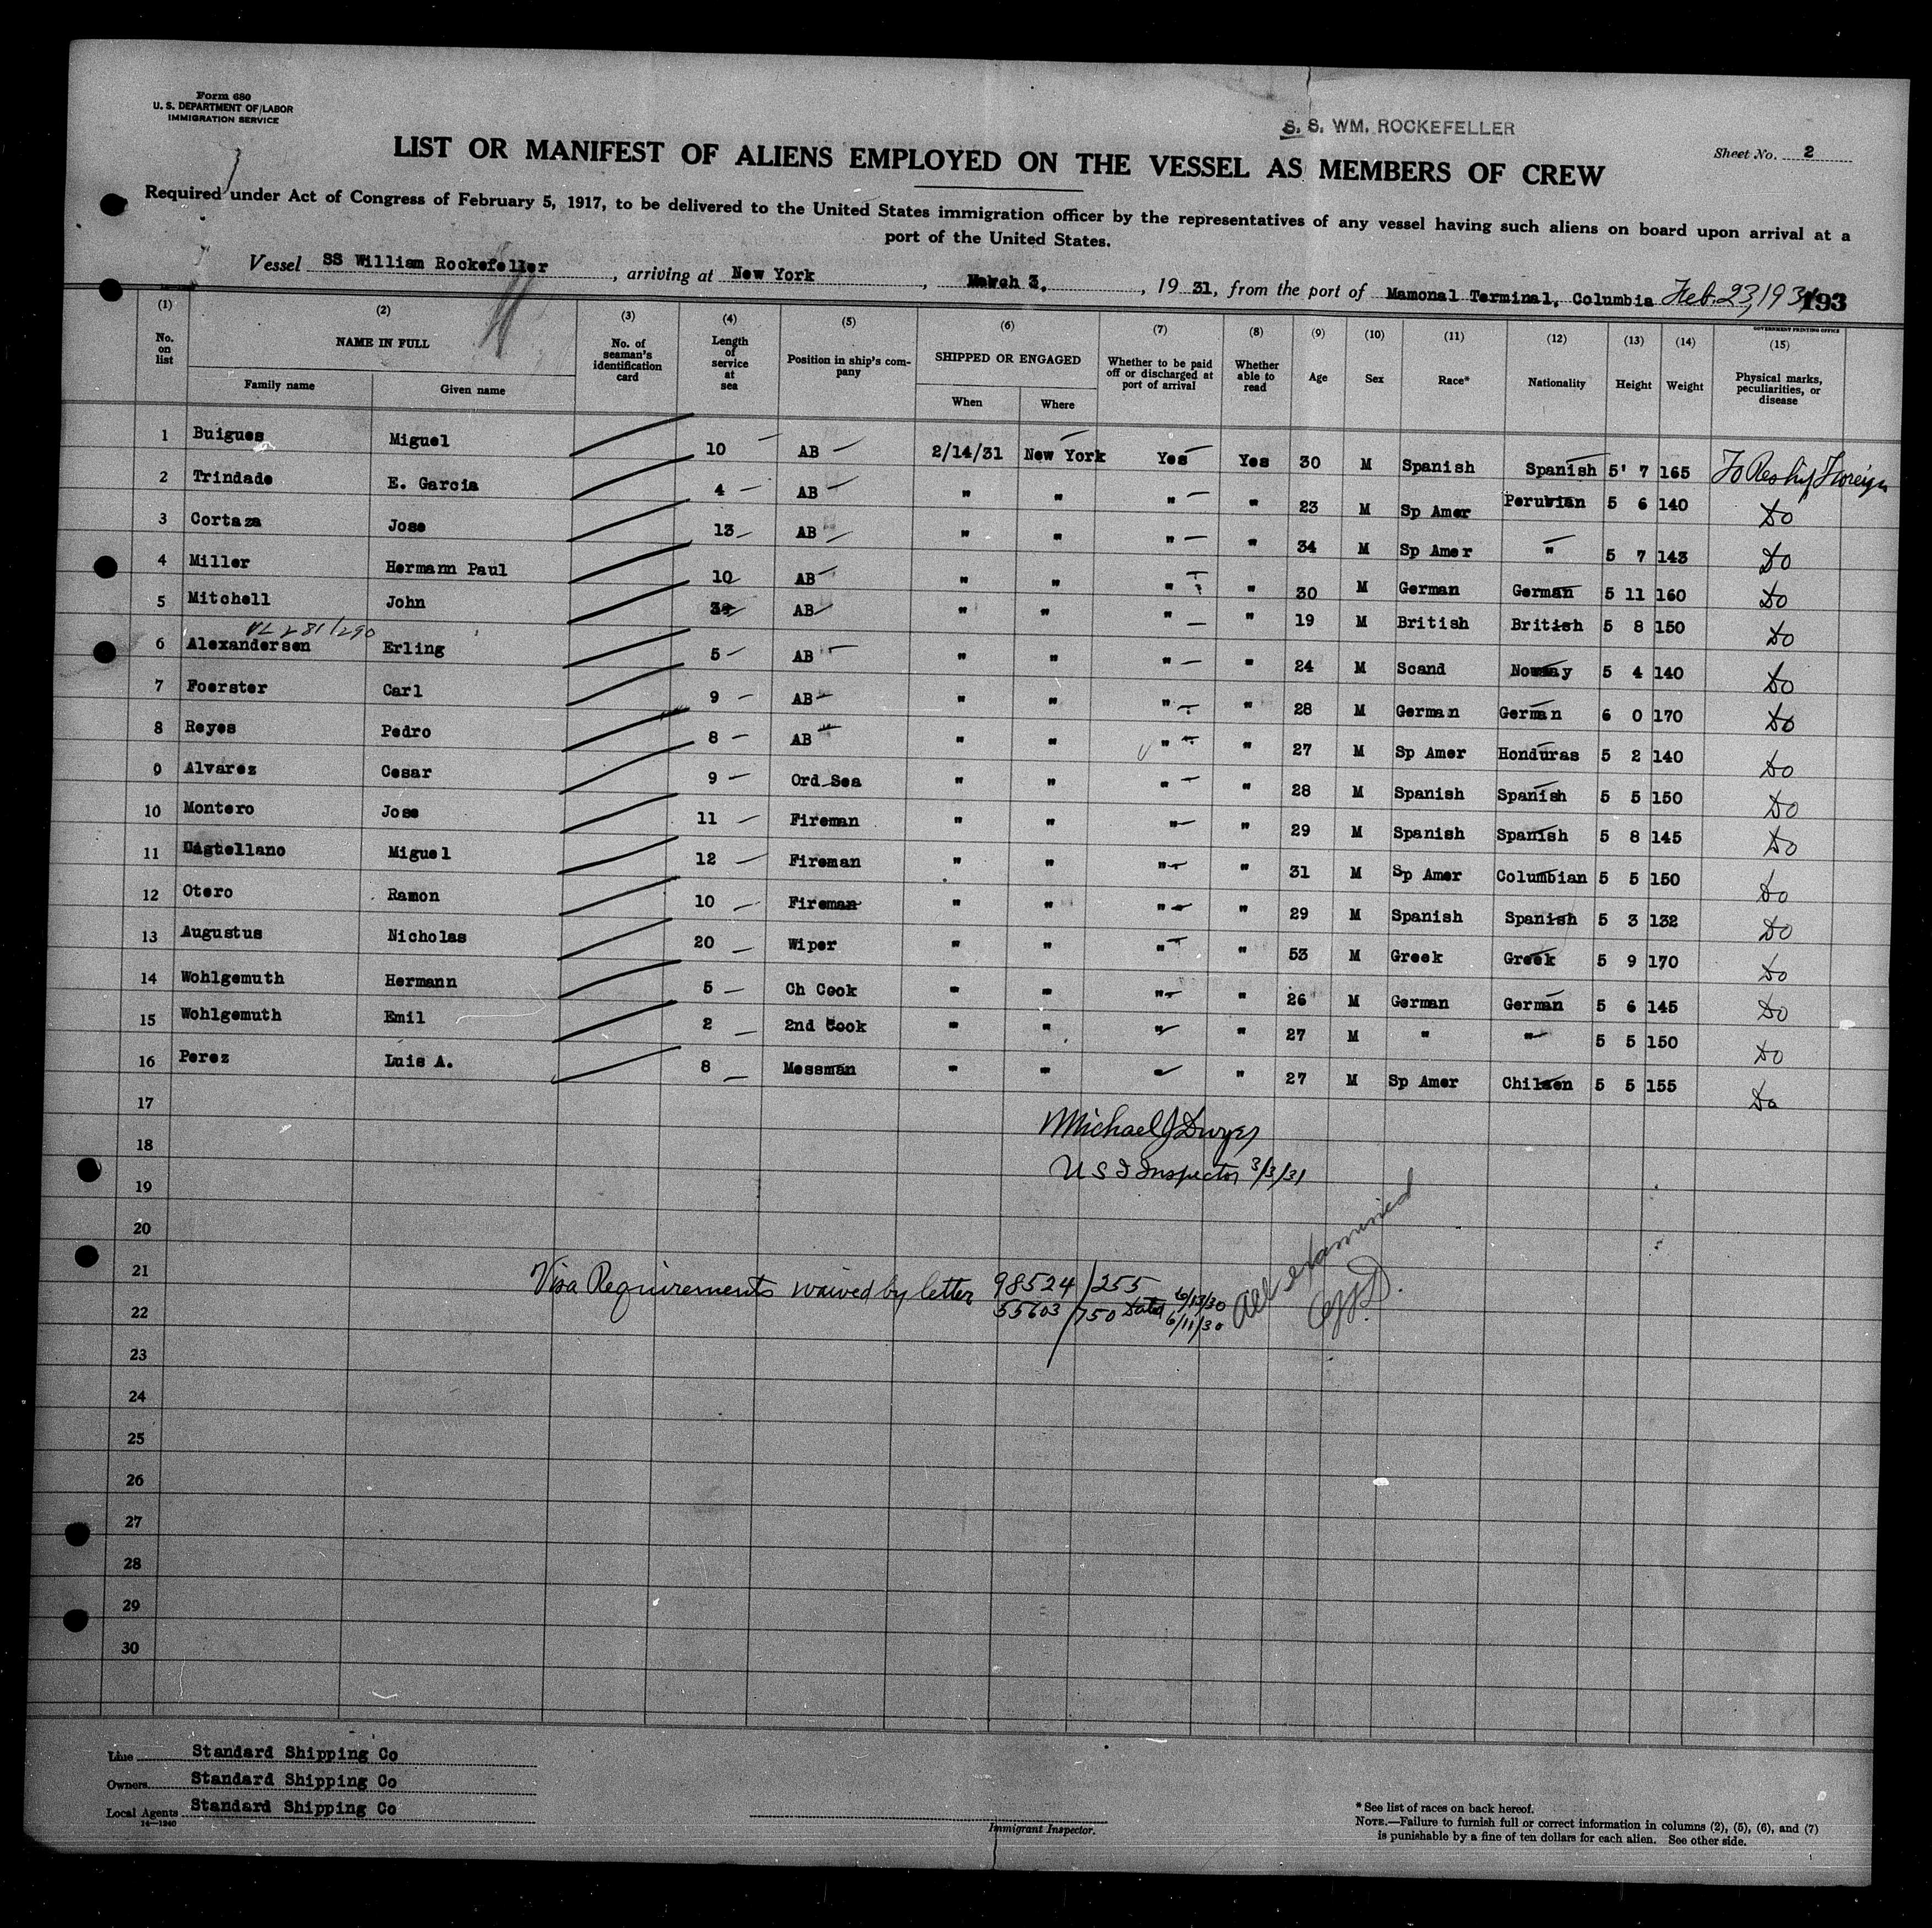 Form 680
U. S. DEPARTMENT OF LABOR
IMMIGRATION SERVICE
S. S. WM. ROCKEFELLER
Sheet No. 2
LIST OR MANIFEST OF ALIENS EMPLOYED ON THE VESSEL AS MEMBERS OF CREW
Required under Act of Congress of February 5, 1917, to be delivered to the United States immigration officer by the representatives of any vessel having such aliens on board upon arrival at a
port of the United States.
Vessel SS William Rockefeller, arriving at New York, March 3, 1931, from the port of Mamonal Terminal, Columbia Feb. 23, 1931 193
GOVERNMENT PRINTING OFFICE
(1) (2) (3) (4) (5) (6) (7) (8) (9) (10) (11) (12) (13) (14) (15)
No. on list NAME IN FULL Family name Given name No. of seaman's identification card Length of service at sea Position in ship's company SHIPPED OR ENGAGED When Where Whether to be paid off or discharged at port of arrival Whether able to read Age Sex Race* Nationality Height Weight Physical marks, peculiarities, or disease
1 Buigues Miguel 10 AB 2/14/31 New York Yes Yes 30 M Spanish Spanish 5' 7 165 To Reship Foreign
2 Trindade E. Garcia 4 AB " " " " 23 M Sp Amer Peruvian 5 6 140 Do
3 Cortaza Jose 13 AB " " " " 34 M Sp Amer " 5 7 143 Do
4 Miller Hermann Paul 10 AB " " " " 30 M German German 5 11 160 Do
5 Mitchell John AB " " " " 19 M British British 5 8 150 Do
6 Alexandersen Erling 5 AB " " " " 24 M Scand Noway 5 4 140 Do
7 Foerster Carl 9 AB " " " " 28 M German German 6 0 170 Do
8 Reyes Pedro 8 AB " " " " 27 M Sp Amer Honduras 5 2 140 Do
9 Alvarez Cesar 9 Ord Sea " " " " 28 M Spanish Spanish 5 5 150 Do
10 Montero Jose 11 Fireman " " " " 29 M Spanish Spanish 5 8 145 Do
11 Castellano Miguel 12 Fireman " " " " 31 M Sp Amer Columbian 5 5 150 Do
12 Otero Ramon 10 Fireman " " " " 29 M Spanish Spanish 5 3 132 Do
13 Augustus Nicholas 20 Wiper " " " " 53 M Greek Greek 5 9 170 Do
14 Wohlgemuth Hermann 5 Ch Cook " " " " 26 M German German 5 6 145 Do
15 Wohlgemuth Emil 2 2nd Cook " " " " 27 M " " 5 5 150 Do
16 Perez Luis A. 8 Messman " " " " 27 M Sp Amer Chileen 5 5 155 Do
17
Michael J Dwyer
18
U S I Inspector 3/3/31
19
20
21
Visa Requirements waived by letter 98524/255 6/13/30
55603/750 Dated 6/11/30
All examined
22
23
24
25
26
27
28
29
30
Line Standard Shipping Co
Owners Standard Shipping Co
Local Agents Standard Shipping Co
14—1240
Immigrant Inspector.
* See list of races on back hereof.
NOTE.—Failure to furnish full or correct information in columns (2), (5), (6), and (7)
is punishable by a fine of ten dollars for each alien. See other side.